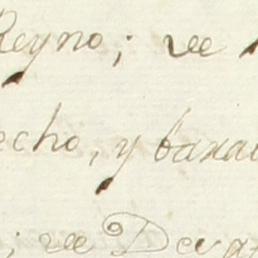 Reyno; ve
echo, y baxa
; ve Deva